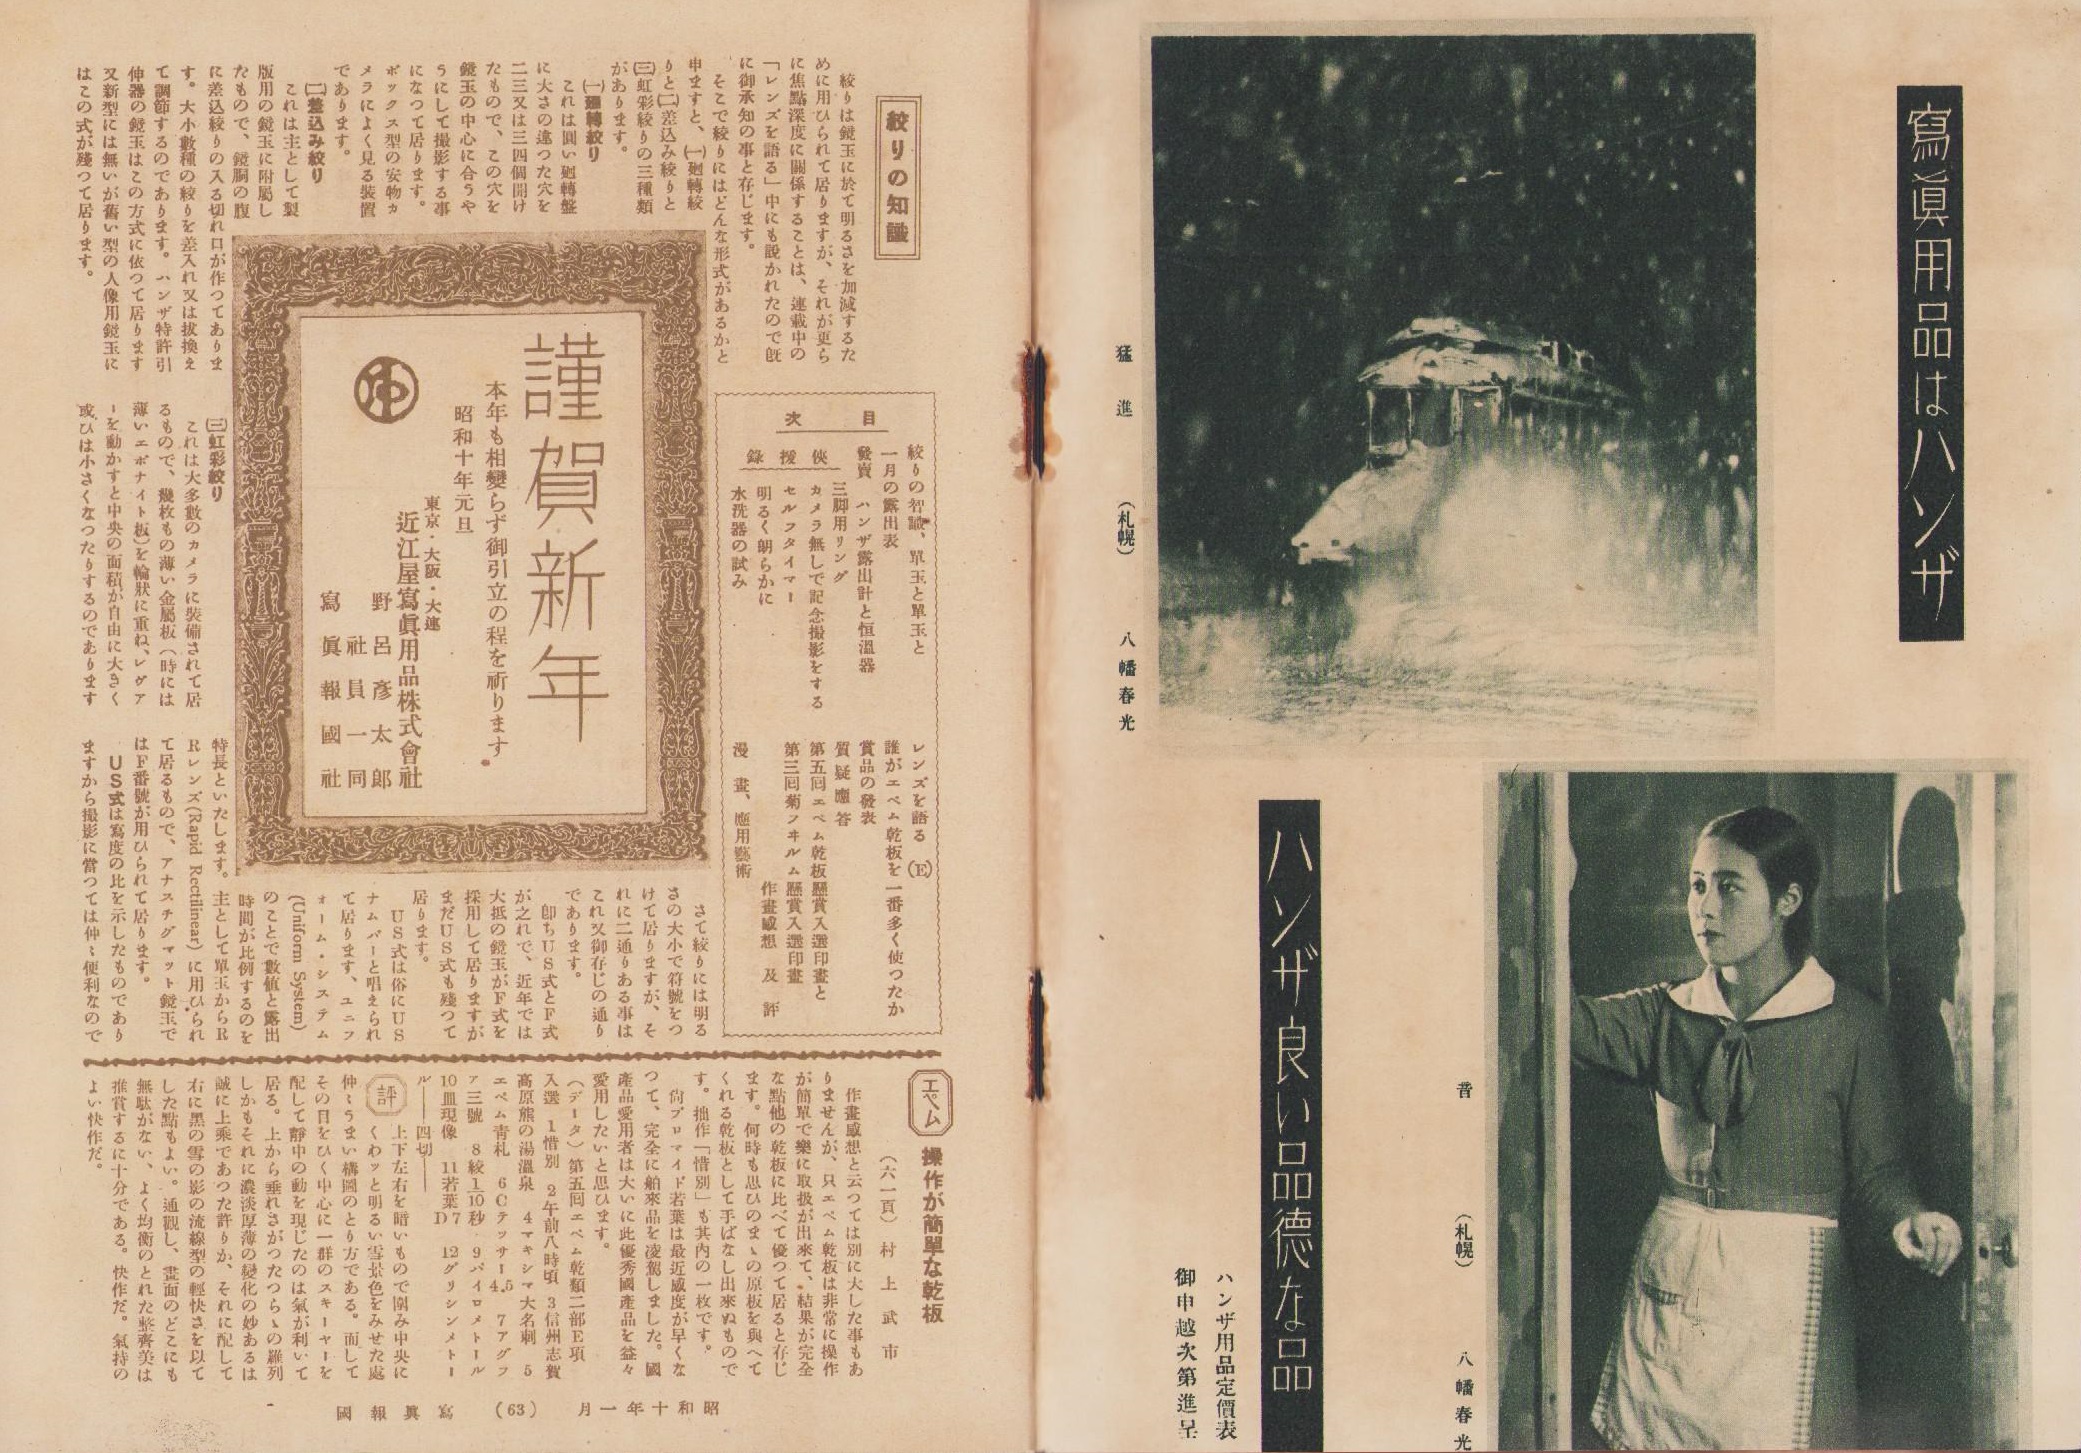 寫眞用品はハンザ
猛進
(札幌)
八幡春光
ハンザ良い品德な品
昔
(札幌)
八幡春光
ハンザ用品定價表
御申越次第進呈
絞りの知識
絞りは鏡玉に於て明るさを加減するた
めに用ひられて居りますが、それが更ら
に焦點深度に關係することは、連載中の
「レンズを語る」中にも說かれたので旣
に御承知の事と存じます。
そこで絞りにはどんな形式があるかと
申ますと、(一)廻轉絞
りと(二)差込み絞りと
(三)虹彩絞りの三種類
があります。
(一)廻轉絞り
これは圓い廻轉盤
に大さの違つた穴を
二三又は三四個開け
たもので、この穴を
鏡玉の中心に合うや
うにして撮影する事
になつて居ります。
ボックス型の安物カ
メラによく見る裝置
であります。
(二)差込み絞り
これは主として製
版用の鏡玉に附屬し
たもので、鏡胴の腹
に差込絞りの入る切れ口が作つてありま
す。大小數種の絞りを差入れ又は拔換え
て調節するのであります。ハンザ特許引
伸器の鏡玉はこの方式に依つて居ります
又新型には無いが舊い型の人像用鏡玉に
はこの式が殘つて居ります。
(三)虹彩絞り
これは大多數のカメラに裝備されて居
るもので、幾枚もの薄い金屬板(時には
薄いエボナイト板)を輪狀に重ね、レヴァ
ーを動かすと中央の面積が自由に大きく
或ひは小さくなつたりするのであります
謹賀新年
本年も相變らず御引立の程を祈ります。
昭和十年元旦
東京・大阪・大連
近江屋寫眞用品株式會社
野呂彥太郞
社員一同
寫眞報國社
目次
絞りの智識、單玉と單玉と
一月の露出表
發賣 ハンザ露出計と恒溫器
俠援錄
三脚用リング
カメラ無しで記念撮影をする
セルフタイマー
明るく朗らかに
水洗器の試み
レンズを語る (E)
誰がエペム乾板を一番多く使つたか
賞品の發表
質疑應答
第五回エペム乾板懸賞入選印畫と
第三回菊フヰルム懸賞入選印畫
作畫感想及評
漫畫、應用藝術
さて絞りには明る
さの大小で符號をつ
けて居りますが、そ
れに二通りある事は
これ又御存じの通り
であります。
卽ちUS式とF式
が之れで、近年では
大抵の鏡玉がF式を
採用して居りますが
まだUS式も殘つて
居ります。
US式は俗にUS
ナムバーと唱えられ
て居ります、ユニフ
ォーム・システム
(Uniform System)
のことで數値と露出
時間が比例するのを
特長といたします。主として單玉からR
Rレンズ(Rapid Rectilinear)に用ひられ
て居るもので、アナスチグマット鏡玉で
はF番號が用ひられて居ります。
US式は寫度の比を示したものであり
ますから撮影に當つては仲々便利なので
エペム
操作が簡單な乾板
(六一頁) 村上武市
作畫感想と云つては別に大した事もあ
りませんが、只エペム乾板は非常に操作
が簡單で樂に取扱が出來て、結果が完全
な點他の乾板に比べて優つて居ると存じ
ます。何時も思ひのまゝの原板を與へて
くれる乾板として手ばなし出來ぬもので
す。拙作「惜別」も其內の一枚です。
尙ブロマイド若葉は最近感度が早くな
つて、完全に舶來品を凌駕しました。國
產品愛用者は大いに此優秀國產品を益々
愛用したいと思ひます。
(データ)第五回エペム乾類二部E項
入選 1惜別 2午前八時頃 3信州志賀
高原熊の湯溫泉 4マキシマ大名刺 5
エペム靑札 6Cテッサー4.5 7アグフ
ア三號 8絞1/10秒 9パイロメトール
10皿現像 11若葉D7 12グリシンメトー
ル――四切――
評 上下左右を暗いもので圍み中央に
くわッと明るい雪景色をみせた處
仲々うまい構圖のとり方である。而して
その目をひく中心に一群のスキーヤーを
配して靜中の動を現じたのは氣が利いて
居る。上から垂れさがつたつらゝの羅列
しかもそれに濃淡厚薄の變化の妙あるは
誠に上乘であつた許りか、それに配して
右に黑の雪の影の流線型の輕快さを以て
した點もよい。通觀し、畫面のどこにも
無駄がない、よく均衡のとれた整齊美は
推賞するに十分である。快作だ。氣持の
よい快作だ。
昭和十年一月 (63) 寫眞報國